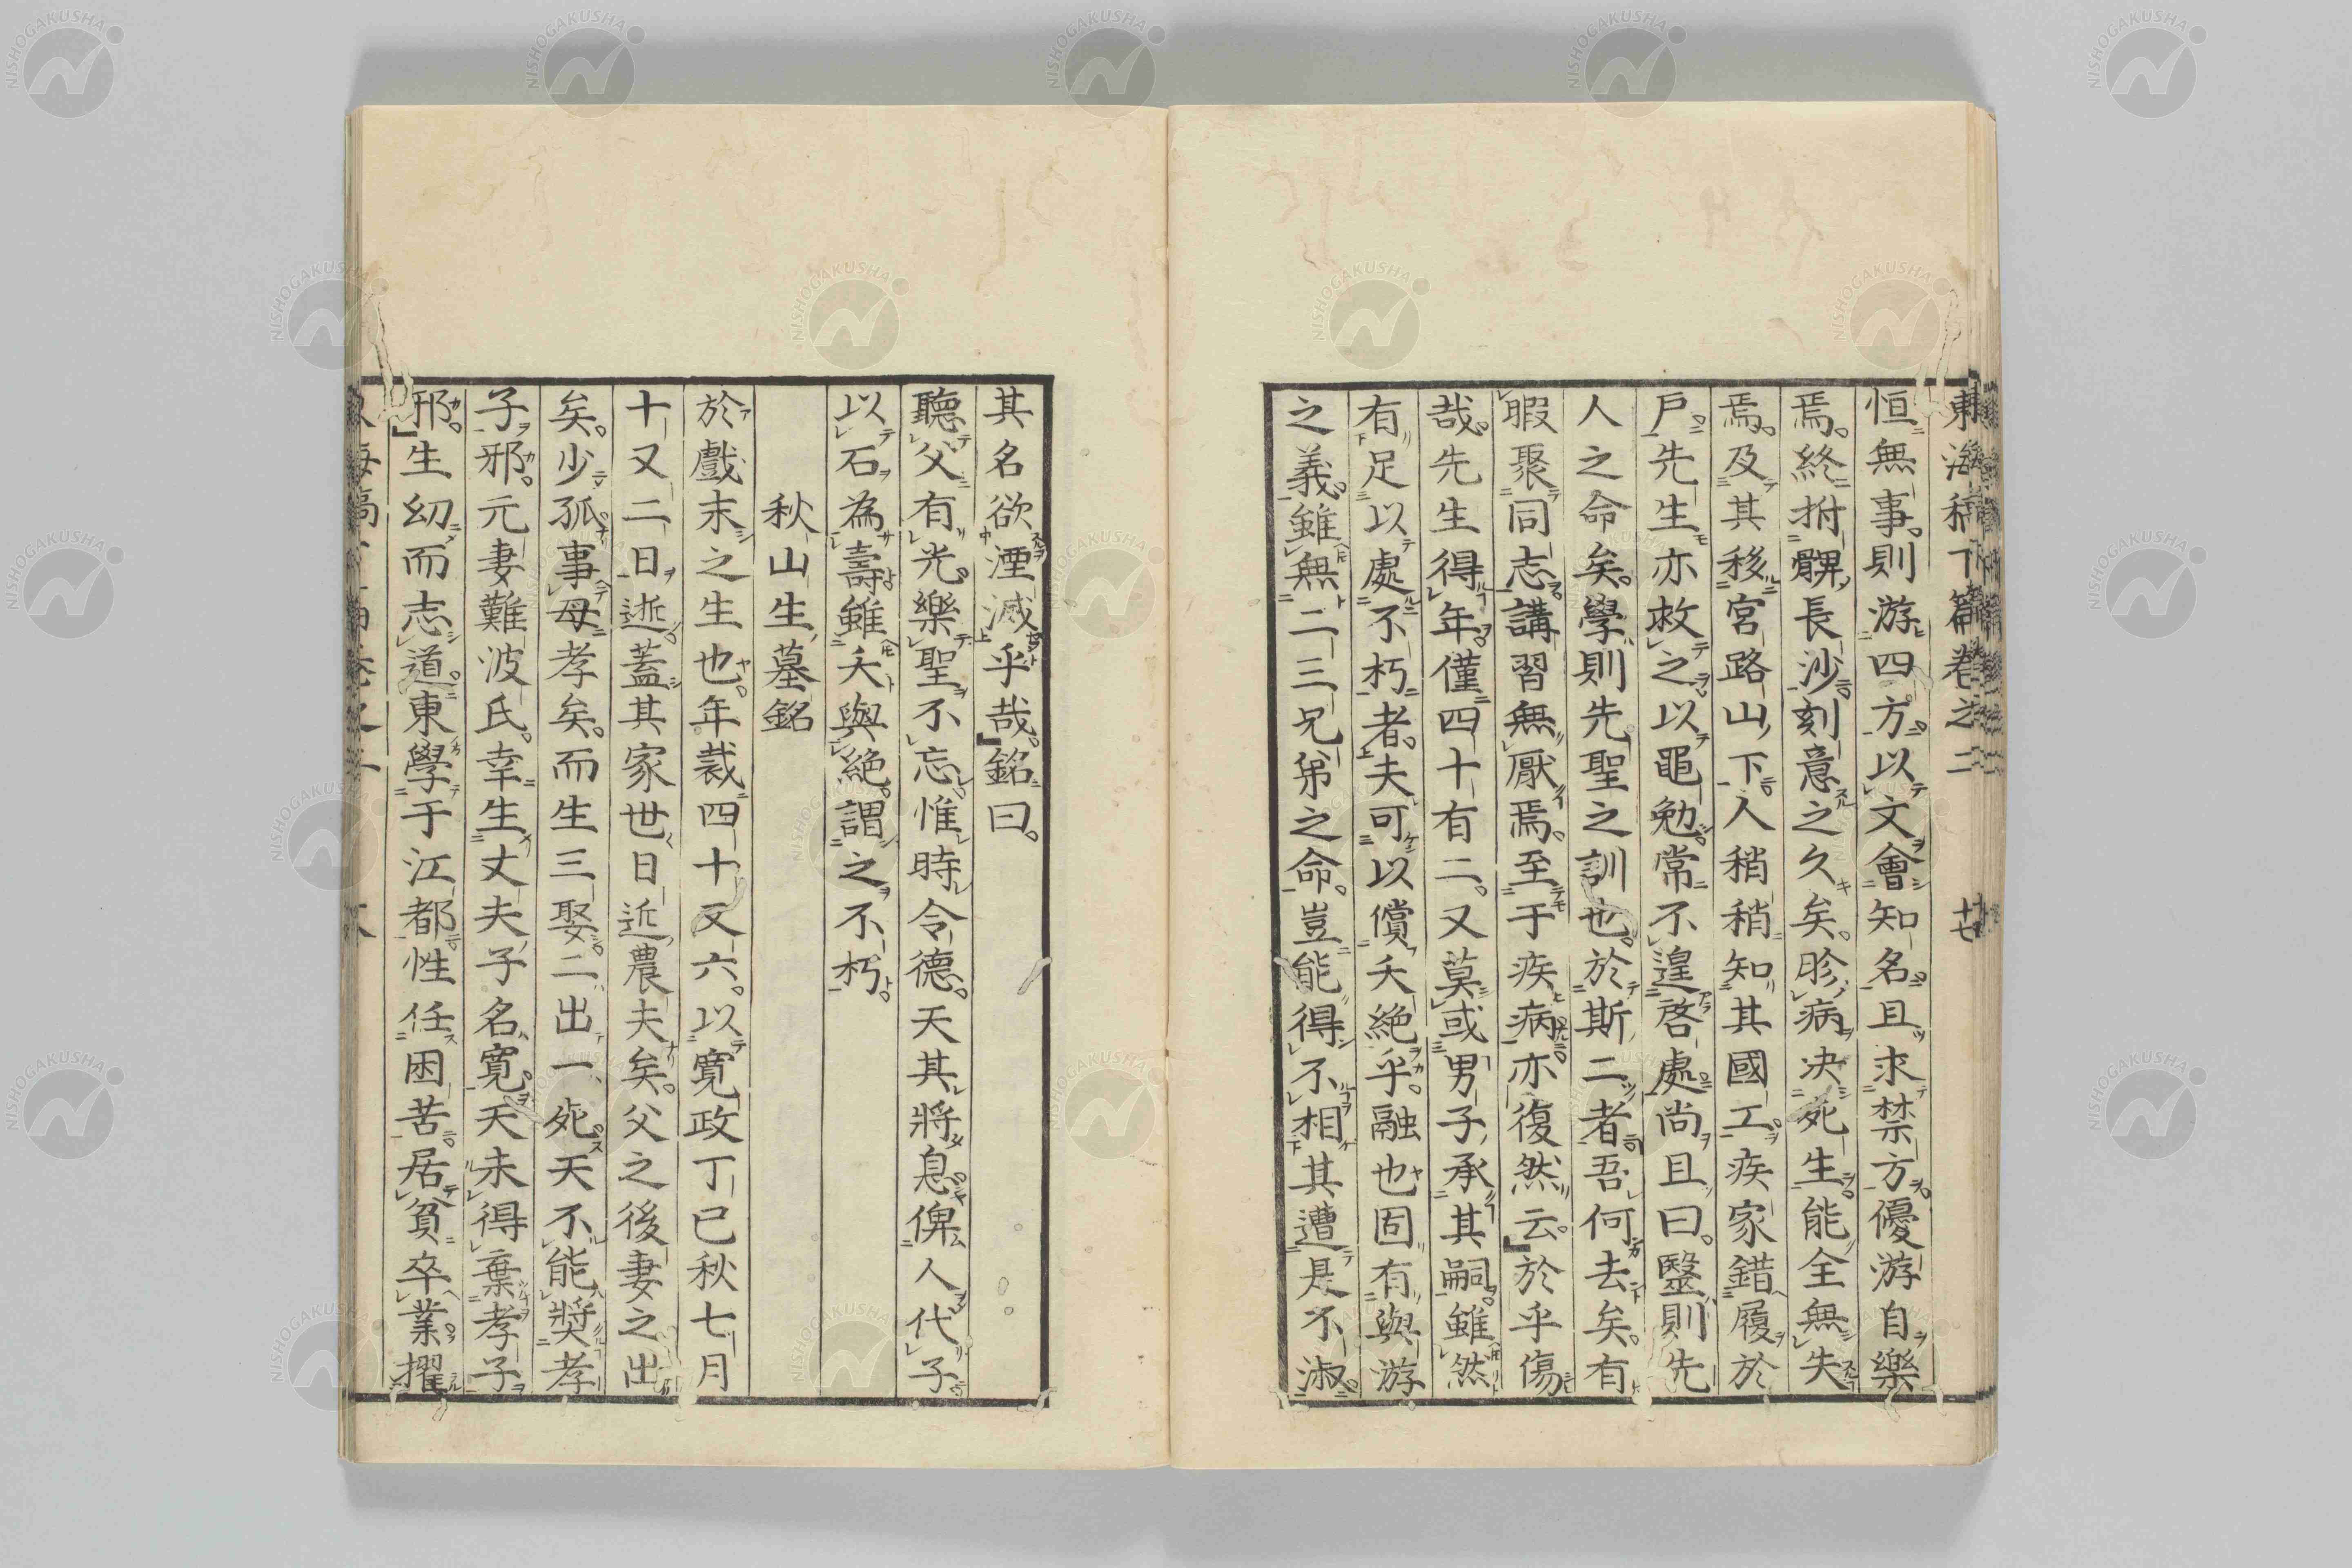 東海稿下篇卷之二 十七
恒無事。則游四方。以文會知名。且求禁方。優游自樂
焉。終拊髀長沙。刻意之久矣。眕病决死生。能全無失
焉。及其移宮路山下。人稍稍知其國工。疾家錯履於
戶。先生亦救之以黽勉。常不遑啓處。尚且曰。毉則先
人之命矣。學則先聖之訓也。於斯二者。吾何去矣。有
暇聚同志講習無厭焉。至于疾病。亦復然云。於乎傷
哉。先生得年。僅四十有二。又莫或男子承其嗣。雖然
有足以處不朽者。夫可以償夭絕乎。融也固有與游
之義。雖無二三兄弟之命。豈能得不相其遭是不淑。
其名欲湮滅乎哉。銘曰。
聽父有光。樂聖不忘。惟時令德。天其將息。俾人代子
以石為壽。雖夭與絕。謂之不朽。
秋山生墓銘
於戲末之生也。年裁四十又六。以寛政丁巳秋七月
十又二日逝。蓋其家世日近農夫矣。父之後妻之出
矣。少孤。事母孝矣。而生三娶。二出一死。天不能奬孝
子邪。元妻難波氏。幸生丈夫子。名寛。天未得棄孝子
邪。生幼而志道。東學于江都。性任困苦。居貧卒業。擢